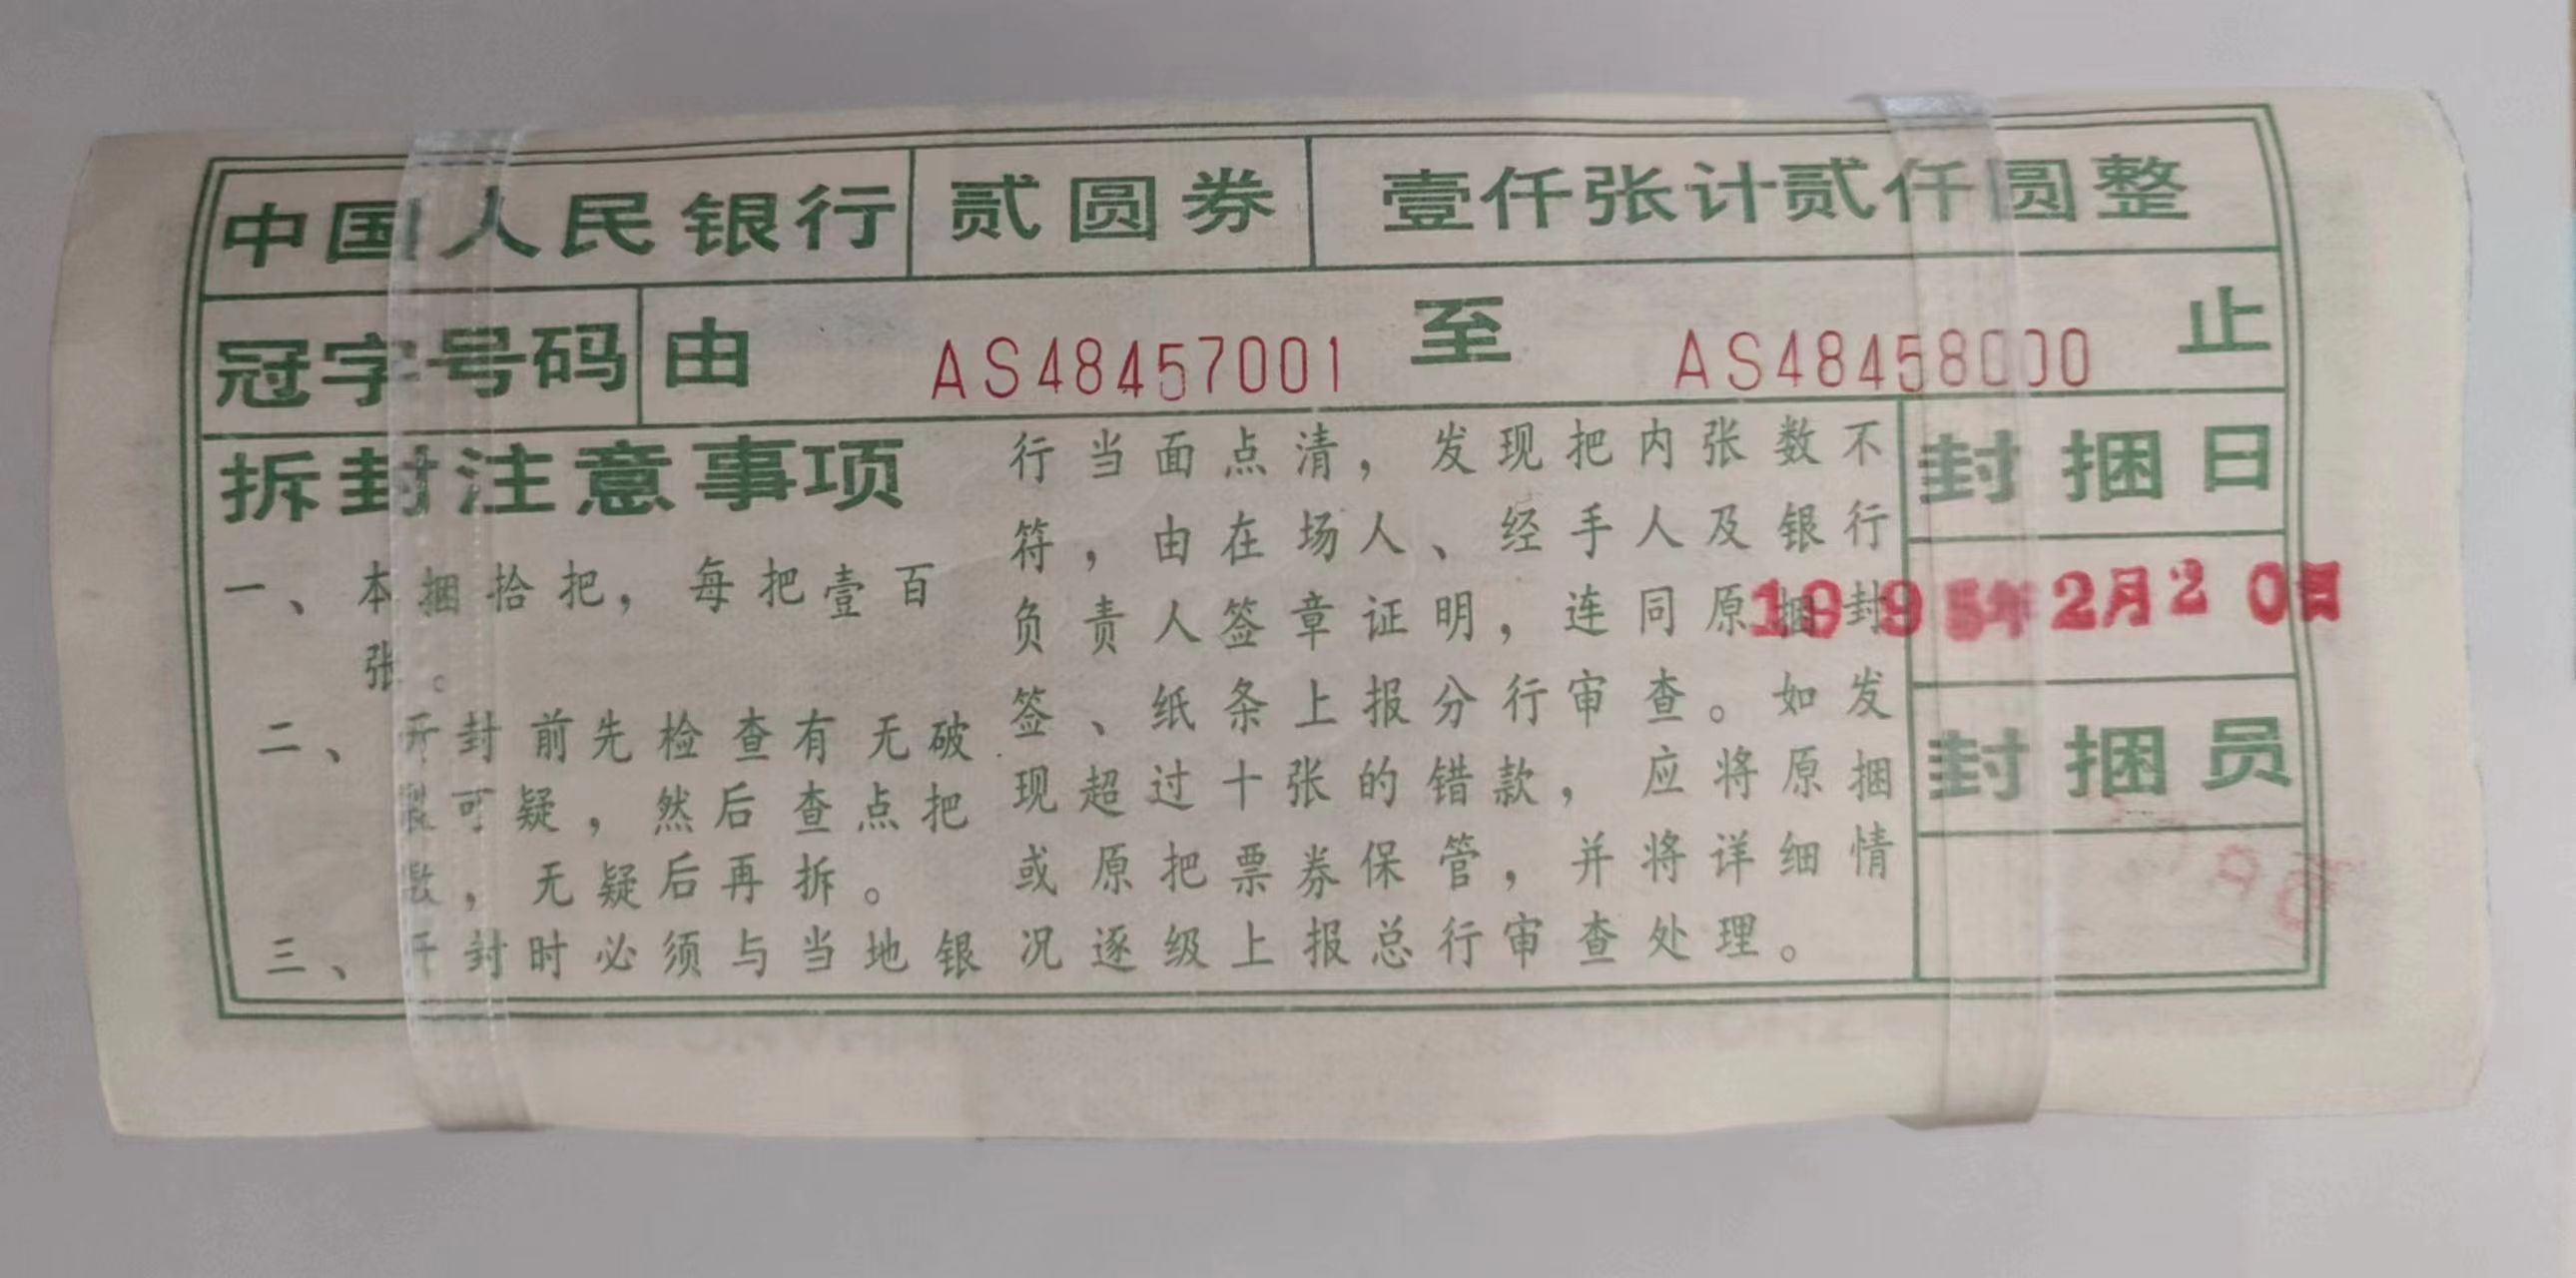 中国人民银行 贰圆券 壹仟张计贰仟圆整
冠字号码 由 AS48457001 至 AS48458000 止
拆封注意事项
一、本捆拾把，每把壹百
张。
二、开封前先检查有无破
裂可疑，然后查点把
数，无疑后再拆。
三、开封时必须与当地银
行当面点清，发现把内张数不
符，由在场人、经手人及银行
负责人签章证明，连同原捆封
签、纸条上报分行审查。如发
现超过十张的错款，应将原捆
或原把票券保管，并将详细情
况逐级上报总行审查处理。
封捆日
1995年2月20日
封捆员